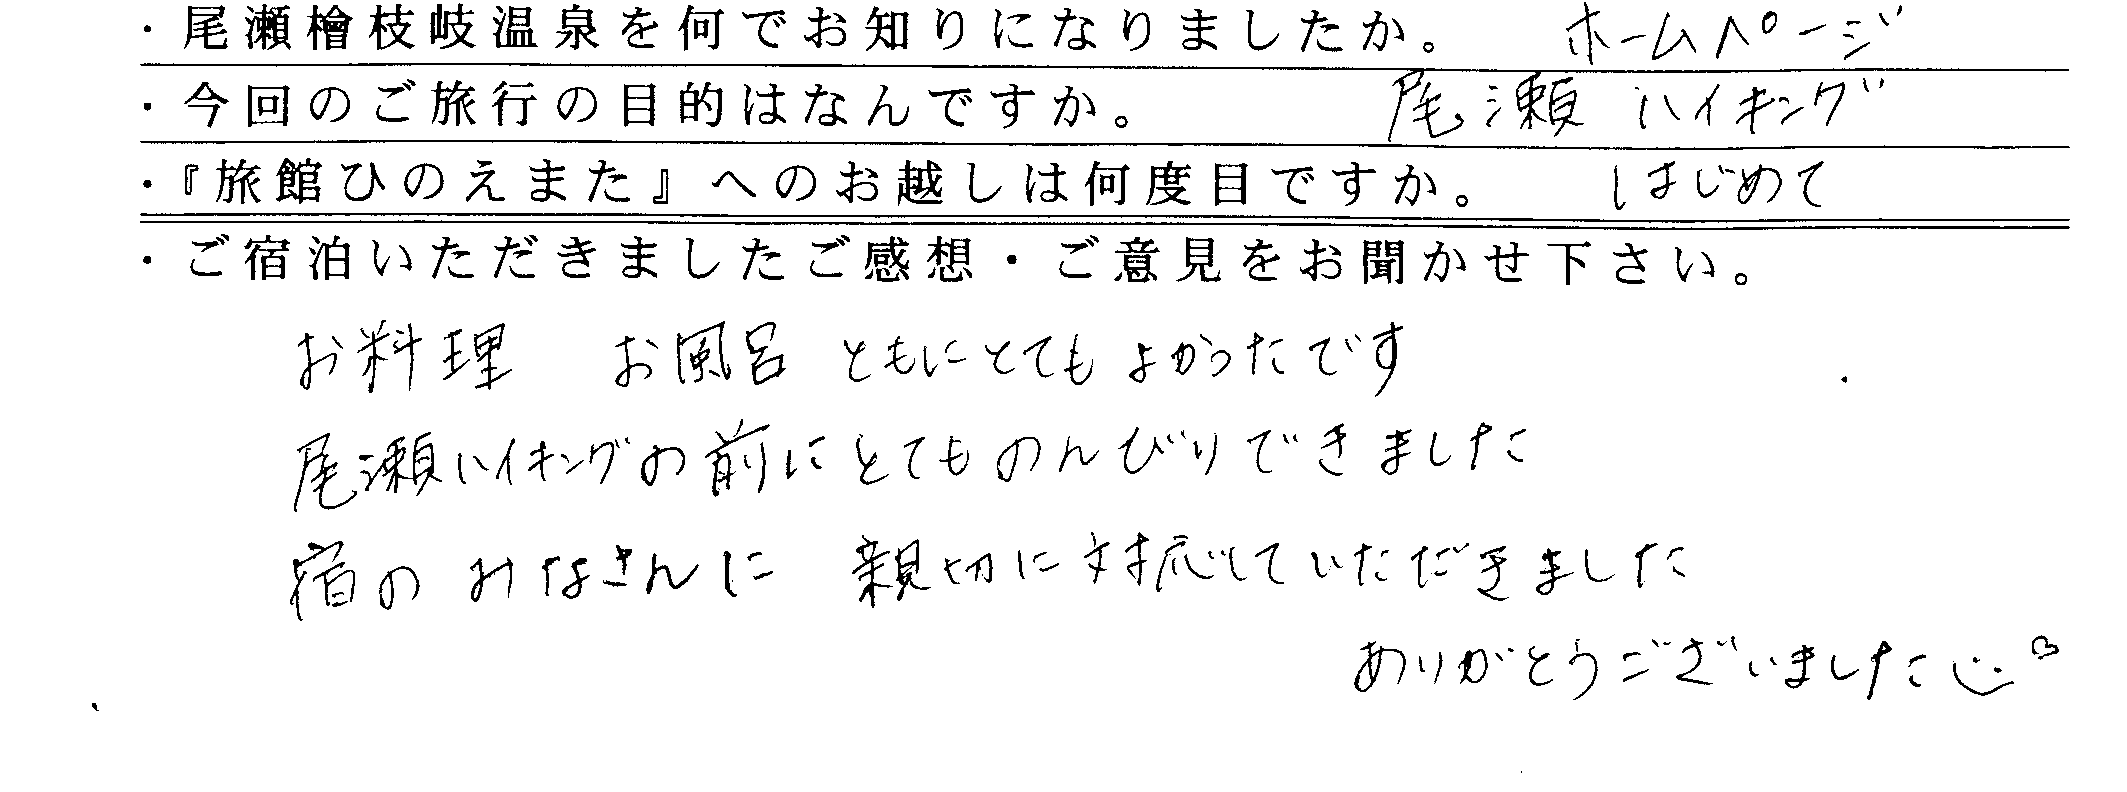 ・尾瀬檜枝岐温泉を何でお知りになりましたか。 ホームページ
・今回のご旅行の目的はなんですか。 尾瀬 ハイキング
・『旅館ひのえまた』へのお越しは何度目ですか。 はじめて
・ご宿泊いただきましたご感想・ご意見をお聞かせ下さい。
お料理 お風呂 ともにとても よかったです
尾瀬ハイキングの前にとてものんびりできました
宿の みなさんに 親切に対応していただきました
ありがとうございました